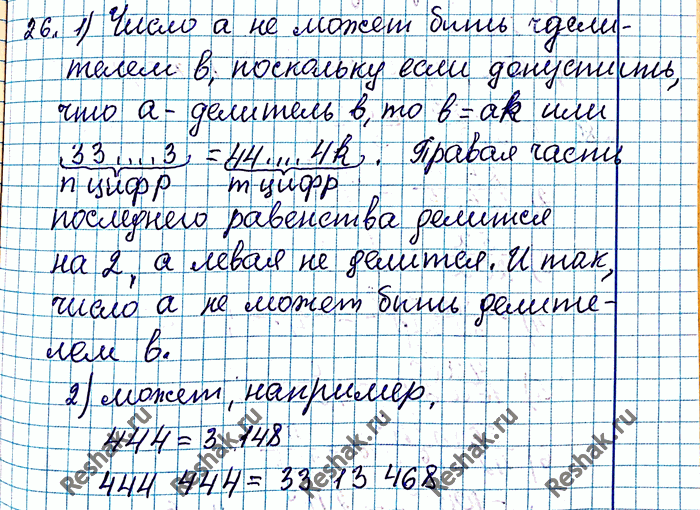 26. 1) Число а не может бить чдели-
телем в, поскольку если допустить,
что а - делитель в, то в = ак или
33....3 = 44....4k. Правая часть
п цифр т цифр
последнего равенства делится
на 2, а левая не делится. И так,
число а не может бить делите-
лем в.
2) может, например,
444 = 3 148
444 444 = 33 13 468
Reshak.ru Reshak.ru Reshak.ru Reshak.ru